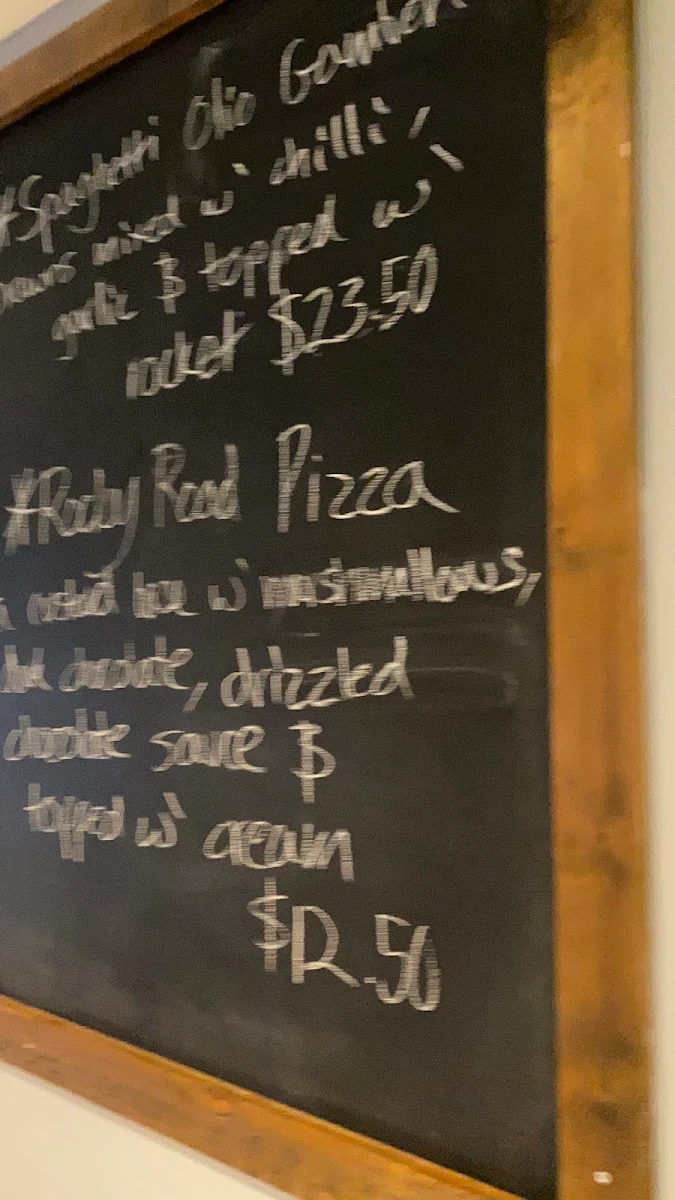 *Spaghetti Olio Gamberi
prawns mixed w' chilli,
garlic & topped w'
rocket $23.50
*Rocky Road Pizza
w' marshmallows,
chocolate, drizzled
chocolate sauce &
topped w' cream
$12.50